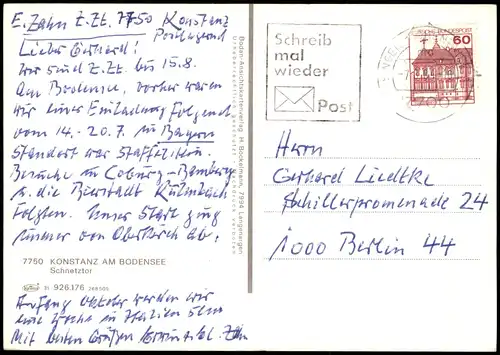 E. Zahn z.Zt. 7750 Konstanz
Postlagernd
Lieber Gerhard!
Wir sind z.Zt. bis 15.8.
am Bodensee, vorher waren
wir einer Einladung folgend
vom 14.-20.7. in Bayern
Standort war Staffelstein.
Besuche in Coburg-Bamberg
u. die Bierstadt Kulmbach
folgten. Unser Start ging
immer von Oberkirch ab.
7750 KONSTANZ AM BODENSEE
Schnetztor
926.176
Anfang Oktober werden wir
eine Woche in Italien sein
Mit besten Grüßen
Boden-Ansichtskartenverlag H. Bockelmann, 7994 Langenargen
Schreib
mal
wieder
Post
DEUTSCHE BUNDESPOST
60
Herrn
Gerhard Liedtke
Schillerpromenade 24
1000 Berlin 44